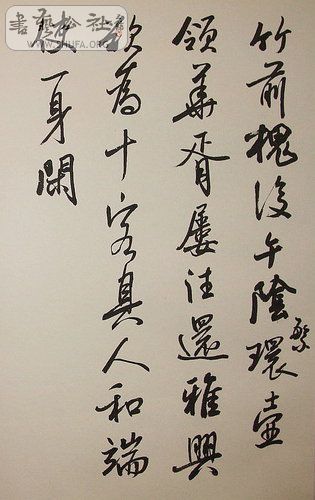 竹前槐後午陰環壺
繁
領華胥屢往還雅興
欲為十客具人和端
使一身閑
WWW.SHUFA.ORG